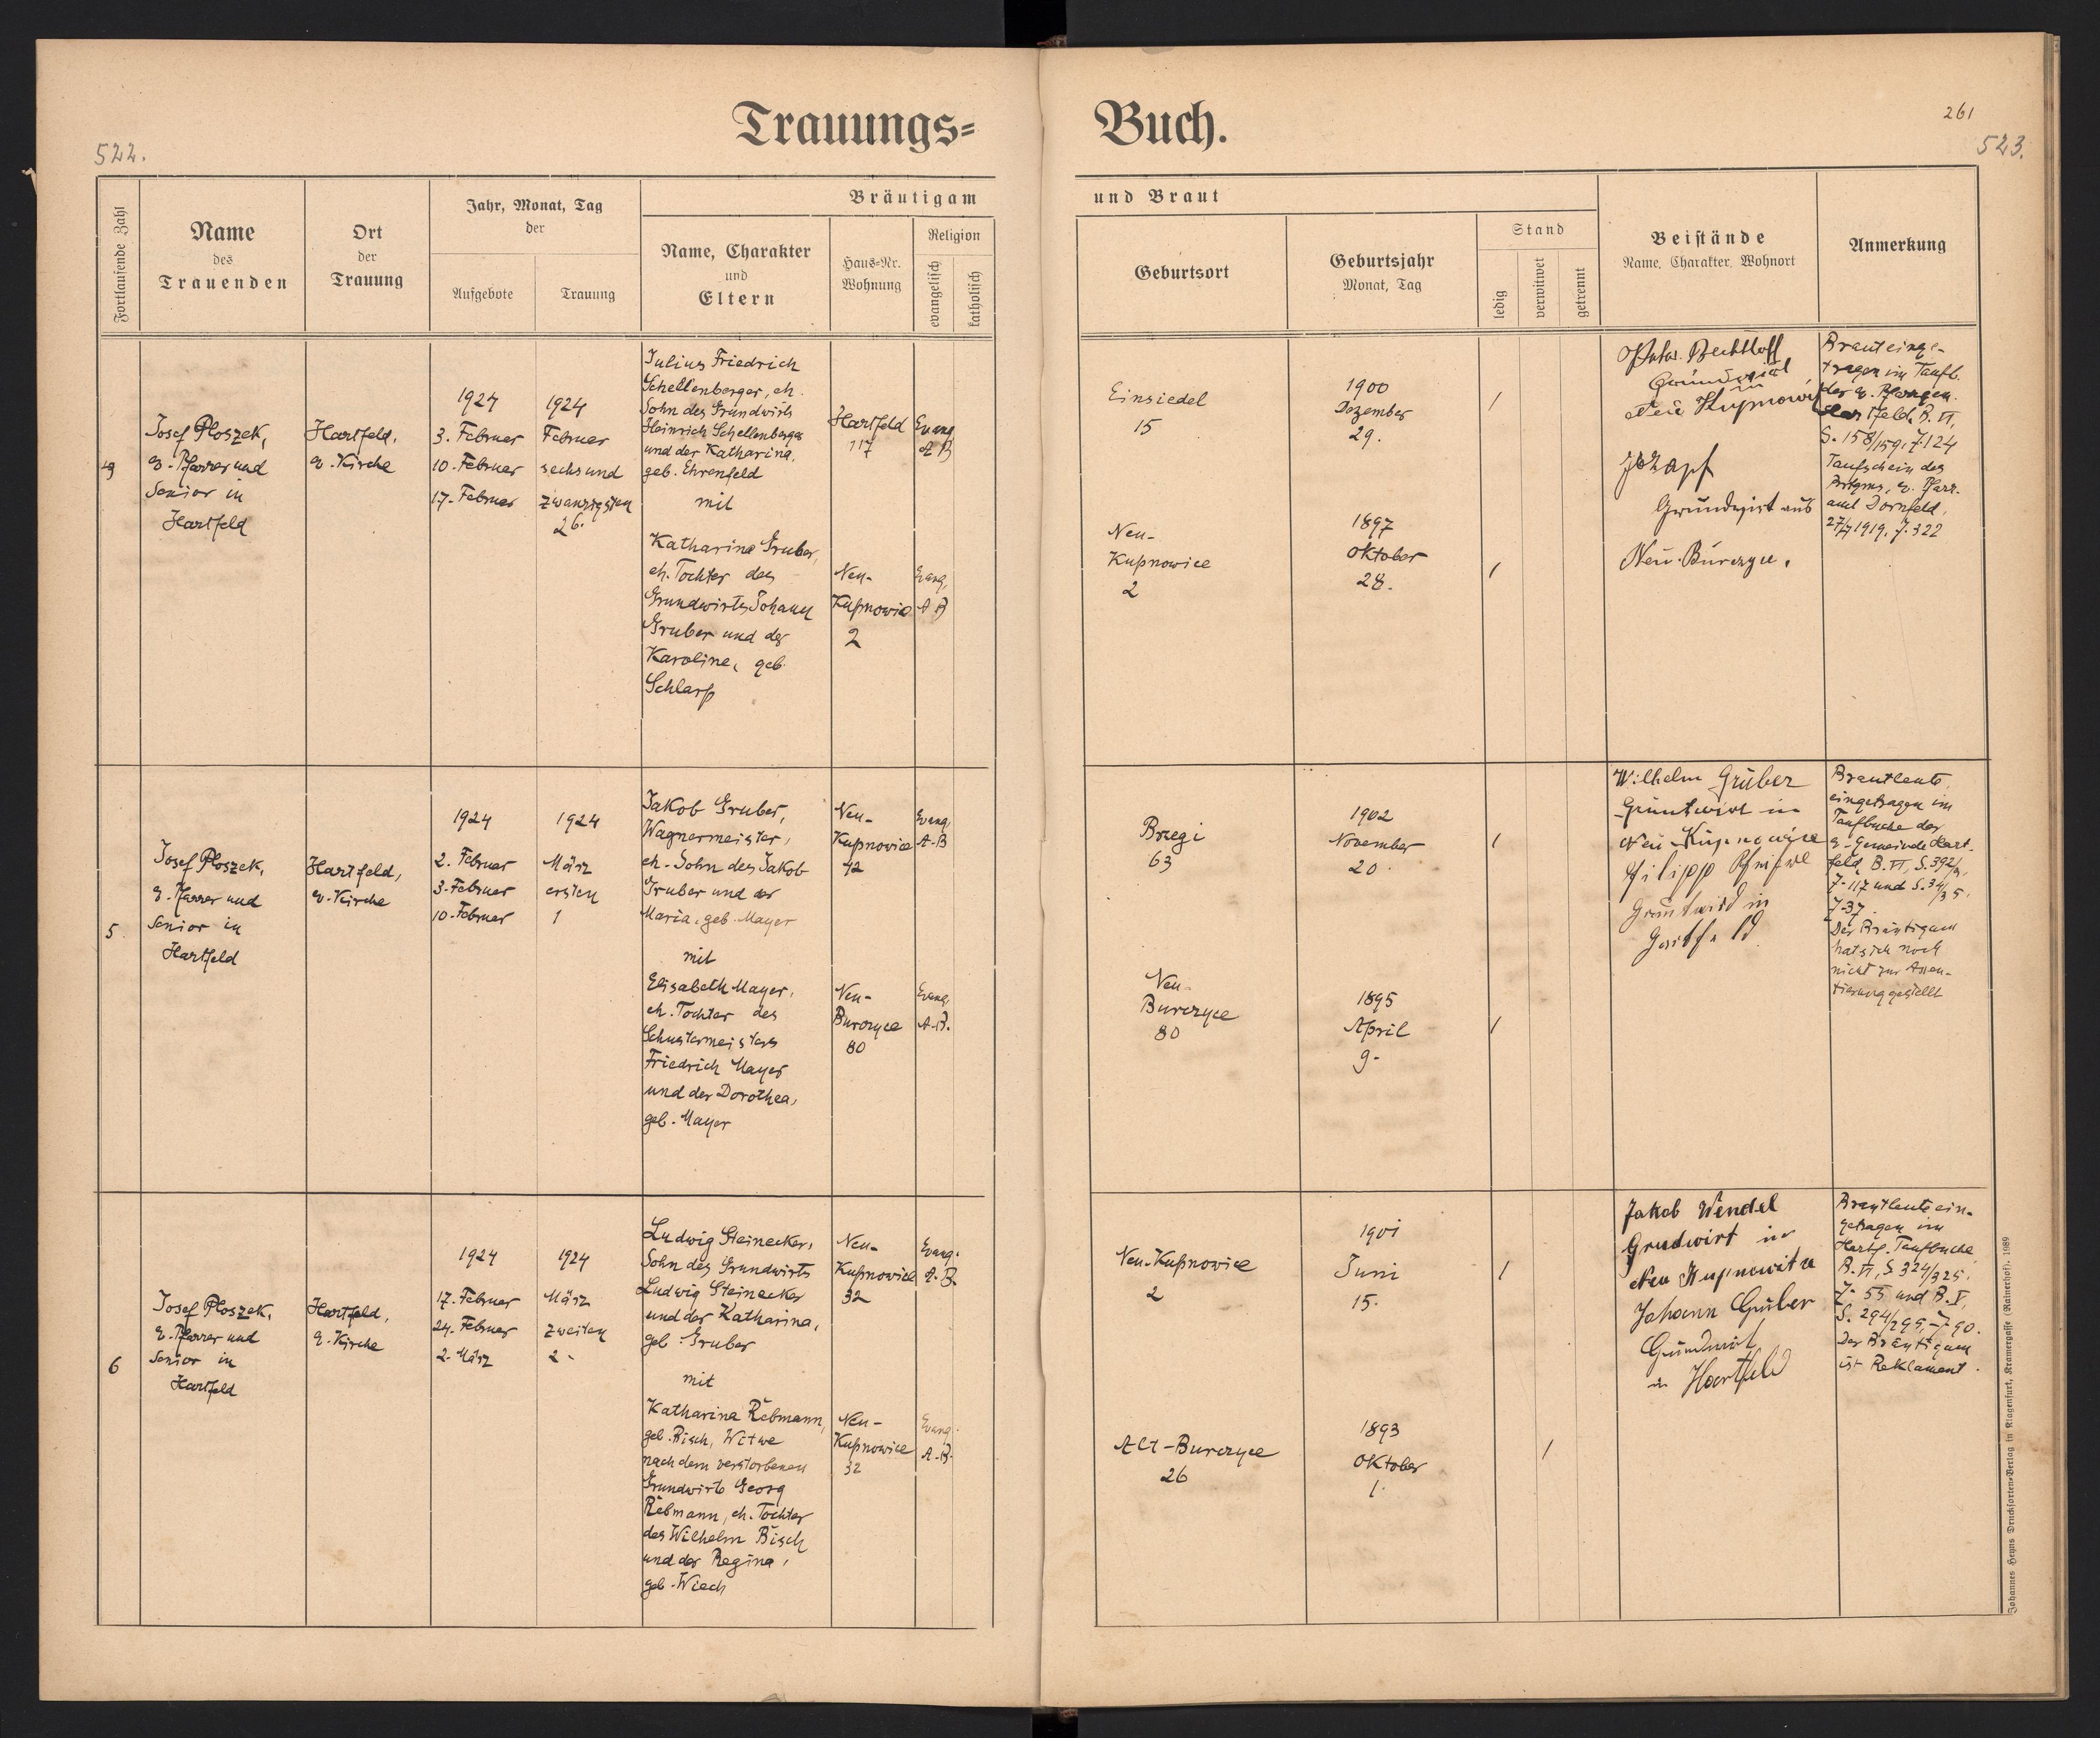 Trauungs=
Buch.
522.
261
523.
Fortlaufende Zahl
Name
des
Trauenden
Ort
der
Trauung
Jahr, Monat, Tag
der
Aufgebote
Trauung
Bräutigam
Name, Charakter
und
Eltern
Haus=Nr.
Wohnung
Religion
evangelisch
katholisch
und Braut
Geburtsort
Geburtsjahr
Monat, Tag
Stand
ledig
verwitwet
getrennt
Beistände
Name, Charakter, Wohnort
Anmerkung
4
Josef Ploszek,
e. Pfarrer und
Senior in
Hartfeld
Hartfeld,
e. Kirche
1924
3. Februar
10. Februar
17. Februar
1924
Februar
sechsund
zwanzigsten
26.
Julius Friedrich
Schellenberger, eh.
Sohn des Grundwirts
Heinrich Schellenberger
und der Katharina,
geb. Ehrenfeld
mit
Katharina Gruber,
eh. Tochter des
Grundwirts Johann
Gruber und der
Karoline, geb.
Schlarp
Hartfeld
117
Neu-
Kupnowice
2
Evang.
A B
Evang.
A B
Einsiedel
15
Neu-
Kupnowice
2
1900
Dezember
29.
1897
Oktober
28.
/
/
Bechtloff
Grundwirt
in
Neu Kupnowice
Zapf
Grundwirt aus
Neu-Burczyce.
Braut einge-
tragen im Taufb.
der e. Pfarrgem.
Hartfeld, B. VI,
S. 158/159, Z. 124
Taufschein des
Brtgms, e. Pfarr-
amt Dornfeld,
27/7 1919. Z. 322
5
Josef Ploszek,
e. Pfarrer und
Senior in
Hartfeld
Hartfeld,
e. Kirche
1924
2. Februar
3. Februar
10. Februar
1924
März
ersten
1
Jakob Gruber,
Wagnermeister,
eh. Sohn des Jakob
Gruber und der
Maria, geb. Mayer
mit
Elisabeth Mayer,
eh. Tochter des
Schustermeisters
Friedrich Mayer
und der Dorothea,
geb. Mayer
Neu-
Kupnowice
42
Neu-
Burczyce
80
Evang.
A. B
Evang.
A. B.
Brzegi
63
Neu-
Burczyce
80
1902
November
20.
1895
April
9.
/
/
Wilhelm Gruber
Grundwirt in
Neu Kupnowice
Philipp
Grundwirt in
Hartfeld
Brautleute
eingetragen im
Taufbuche der
e. Gemeinde Hart-
feld, B. VI, S. 392/3,
Z. 117 und S. 34/35.
Z. 37.
Der Bräutigam
hat sich noch
nicht zur Assen-
tierung gestellt
6
Josef Ploszek,
e. Pfarrer und
Senior in
Hartfeld
Hartfeld,
e. Kirche
1924
17. Februar
24. Februar
2. März
1924
März
zweiten
2.
Ludwig Steinecker,
Sohn des Grundwirts
Ludwig Steinecker
und der Katharina,
geb. Gruber
mit
Katharina Rebmann,
geb. Bisch, Witwe
nach dem verstorbenen
Grundwirt Georg
Rebmann, eh. Tochter
des Wilhelm Bisch
und der Regina,
geb. Wiech
Neu-
Kupnowice
32
Neu-
Kupnowice
32
Evang.
A. B.
Evang.
A. B.
Neu-Kupnowice
2
Alt-Burczyce
26
1901
Juni
15.
1893
Oktober
1.
/
/
Jakob Wendel
Grudwirt in
Neu Kupnowitze
Johann Gruber
Grundwirt
in Hartfeld
Brautleute ein-
getragen im
Hartf. Taufbuche,
B. VI, S. 324/325,
Z. 55 und B. V,
S. 294/295, Z. 90.
Der Bräutigam
ist Reklament.
Johannes Heyns Drucksorten=Verlag in Klagenfurt, Kramergasse (Rainerhof). 1989